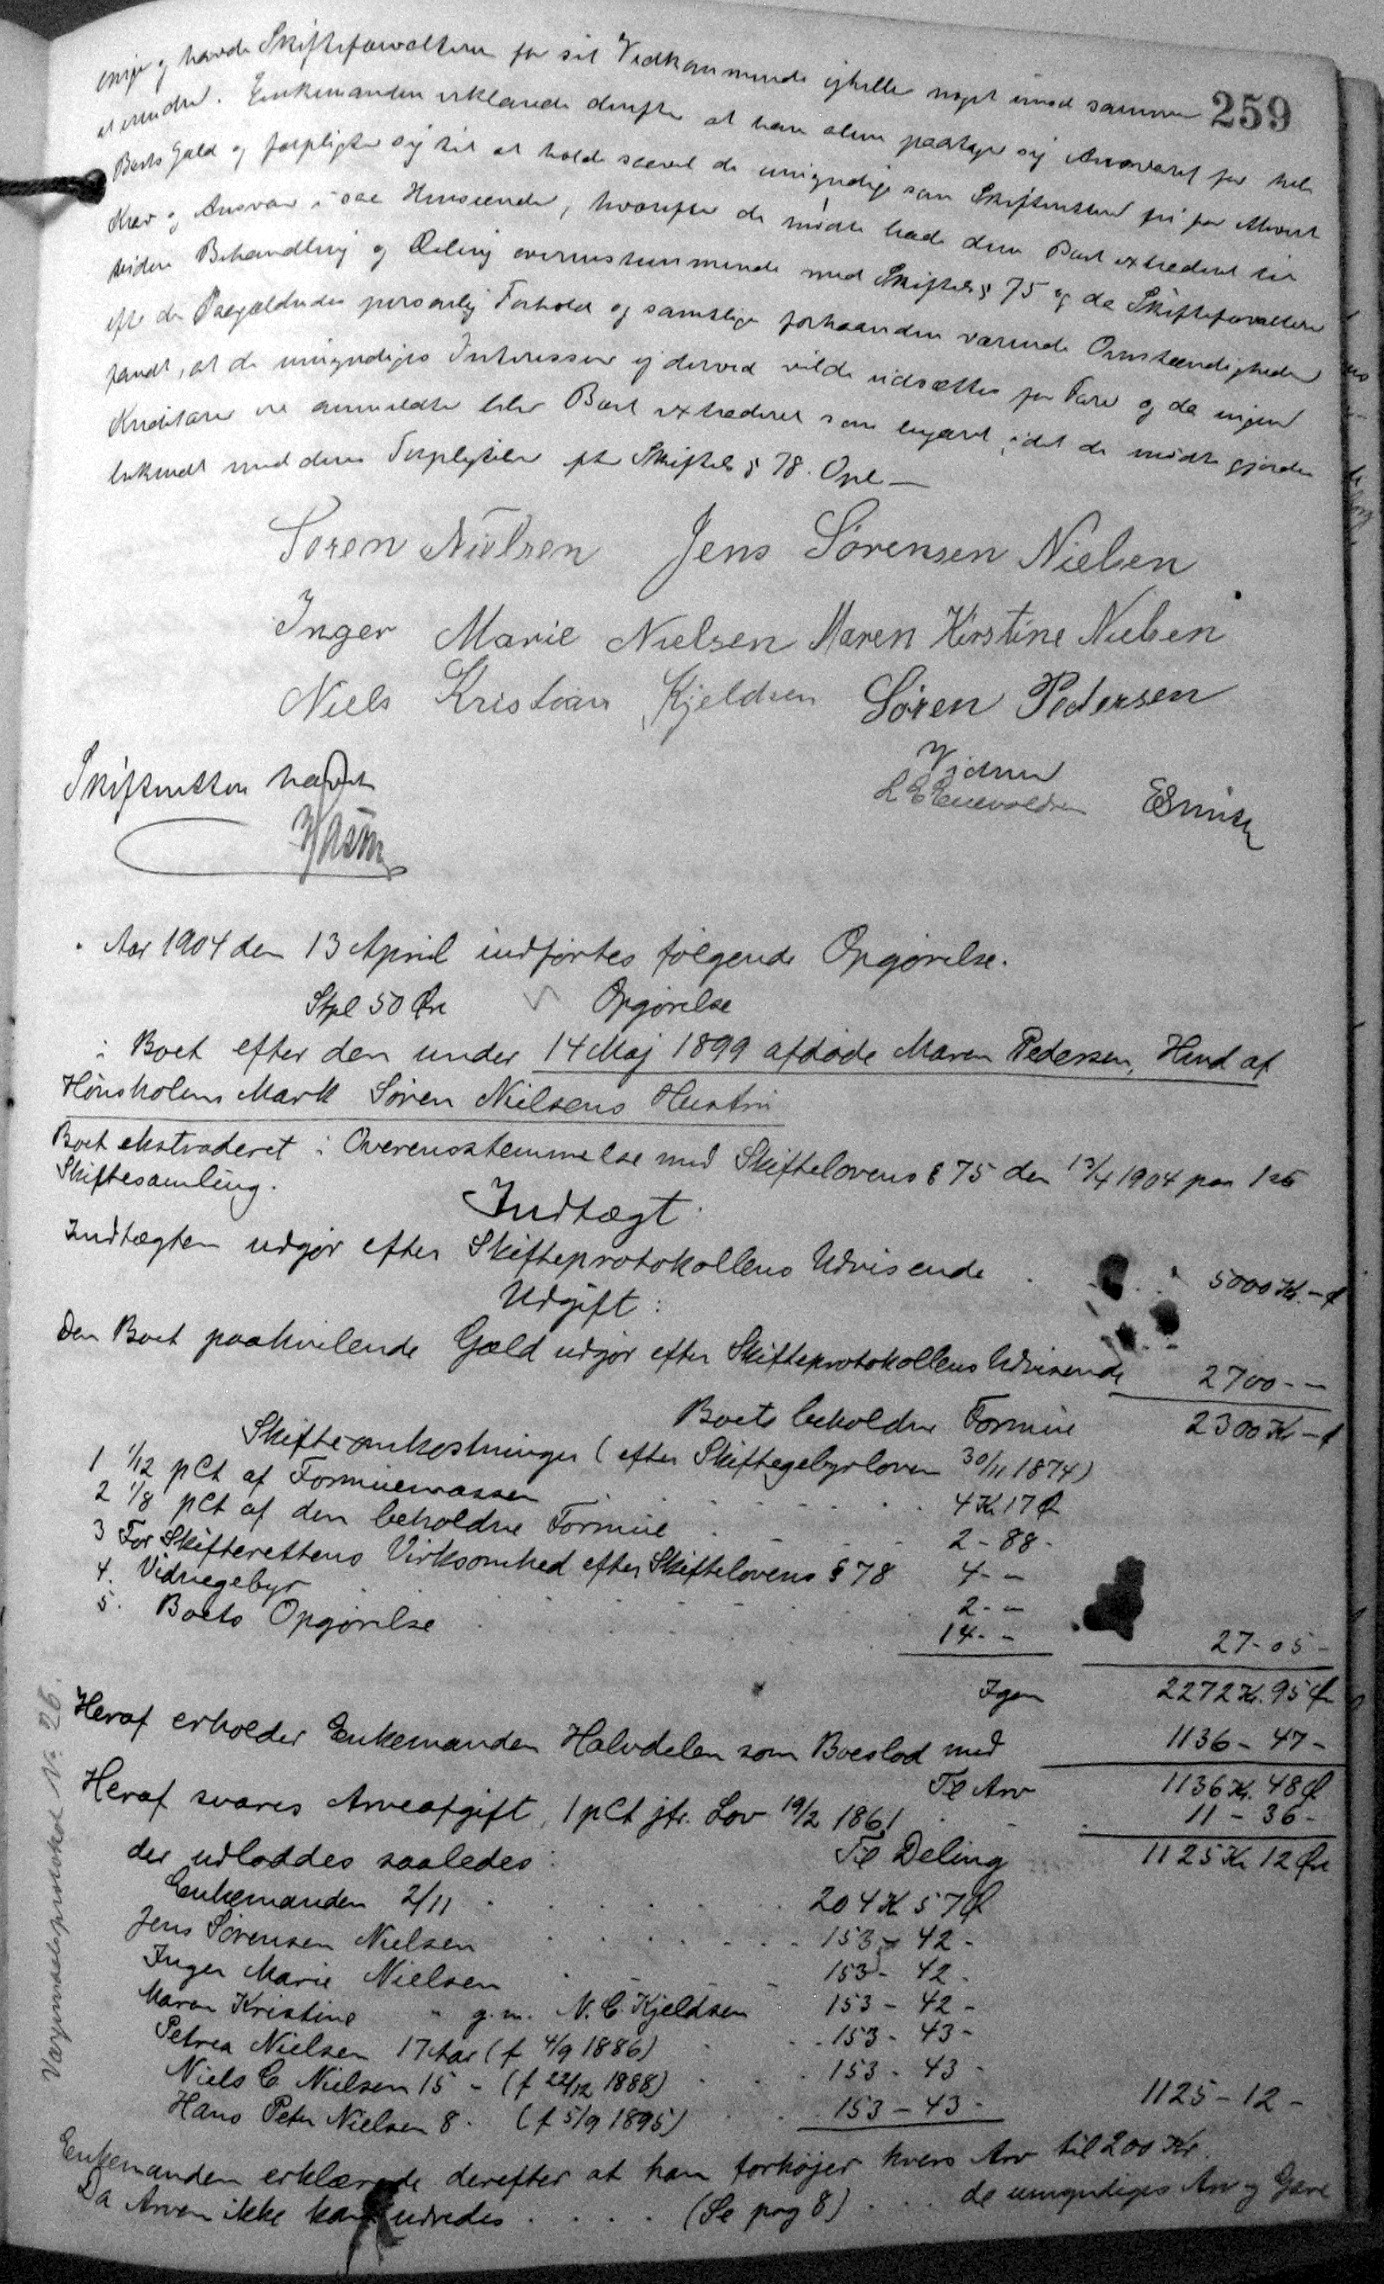 259
enige og havde Skifteforvalteren for sit Vedkommende ejheller noget imod samme
at erindre. Enkemanden erklærede derefter at han alene paatager sig Ansvaret for hele
Boets Gæld og forpligter sig til at holde saavel de umyndige som Skifteretten fri for ethvert
Krav og Ansvar i saa Henseende, hvorefter de mødte bad dem Boet extraderet til
videre Behandling og Deling overensstemmende med Skiftel § 75 og da Skifteforvalteren
efter de Paagældendes personlig Forhold og samtlige forhaanden værende Omstændigheder
fandt, at de umyndiges Interesser ej derved vilde udsættes for Fare og da ingen
Kreditorer var anmeldte blev Boet extraderet som begært, idet de mødte gjordes
bekendt med deres Forpligtelser efter Skiftel § 78. Opl —
Søren Nielsen Jens Sörensen Nielsen
Inger Marie Nielsen Maren Kirstine Nielsen
Niels Kristian Kjeldsen Søren Pedersen
Skifteretten hævet
Vidner
ESmith
Aar 1904 den 13 April indførtes følgende Opgjørelse.
Stpl 50 Øre Opgjørelse
i Boet efter den under 14 Maj 1899 afdøde Maren Pedersen, Hmd af
Hönsholens Mark Søren Nielsens Hustru
Boet ekstraderet i Overensstemmelse med Skiftelovens § 75 den 13/4 1904 paa 1ste
Skiftesamling.
Indtægt
Indtægten udgjør efter Skifteprotokollens Udvisende . . . 5000 Kr. - Ø
Udgift:
Den Boet paahvilende Gæld udgjør efter Skifteprotokollens Udvisende 2700 - -
Boets beholdne Formue 2300 Kr - Ø
Skifteomkostninger (efter Skiftegebyrloven 30/11 1874)
1 1/12 pCt af Formuemassen . . . . 4 Kr 17 Ø
2 1/8 pCt af den beholdne Formue . . . 2 - 88 -
3 For Skifterettens Virksomhed efter Skiftelovens § 78 4 - -
4. Vidnegebyr . . . . 2 - -
5. Boets Opgjørelse . . . . 14 - - 27 - 05 -
Igen 2272 Kr. 95 Ø
Heraf erholder Enkemanden Halvdelen som Boeslod med 1136 - 47 -
Til Arv 1136 Kr. 48 Ø
Heraf svares Arveafgift, 1 pCt jfr. Lov 19/2 1861 . . . 11 - 36 -
Til Deling 1125 Kr 12 Øre
der udloddes saaledes:
Enkemanden 2/11 . . . . 204 Kr 57 Ø
Jens Sørensen Nielsen . . . . 153 - 42 -
Inger Marie Nielsen . . . . 153 - 42 -
Maren Kristine " g. m. N. C. Kjeldsen 153 - 42 -
Petrea Nielsen 17 Aar (f 4/9 1886) . . 153 - 43 -
Niels C Nielsen 15 - (f 22/12 1888) . . 153 - 43 -
Hans Peter Nielsen 8 - (f 5/9 1895) . . 153 - 43 - 1125 - 12 -
Enkemanden erklærede derefter at han forhøjer hvers Arv til 200 Kr.
Da Arven ikke kan udredes . . . . (Se pag 8) . . . de umyndiges Arv og Gave
Værgemaalsprotokol No 26.